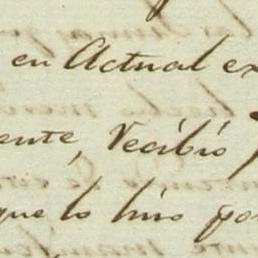 en Actual ex
ente, Recibio
que lo hiso por